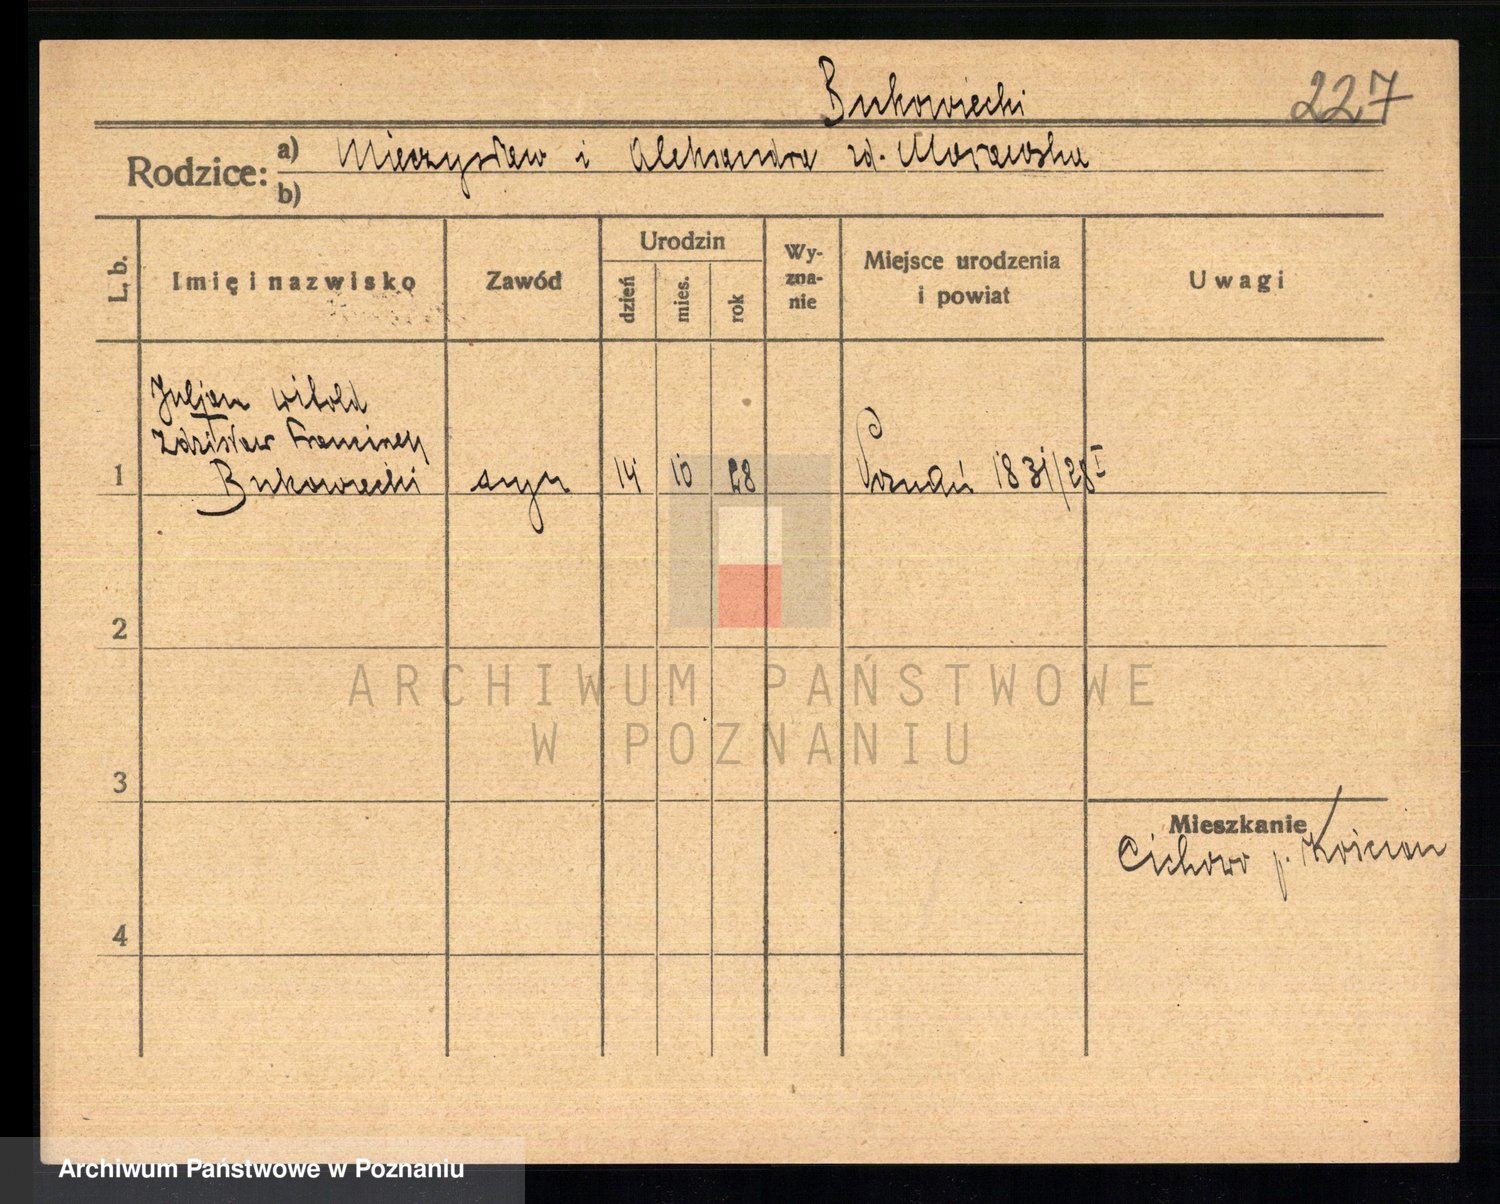 Bukowiecki
227
Rodzice: a) Mieczysław i Aleksandra zd. Morawska
b)
L. b. Imię i nazwisko Zawód Urodzin dzień mies. rok Wy-
zna-
nie Miejsce urodzenia
i powiat Uwagi
Juljan Witold
Zdzisław Franciszek
1 Bukowiecki syn 14 10 28 Poznań 1831/28 I
2
ARCHIWUM PAŃSTWOWE
W POZNANIU
3
Mieszkanie
Cichowo p. Kościan
4
Archiwum Państwowe w Poznaniu